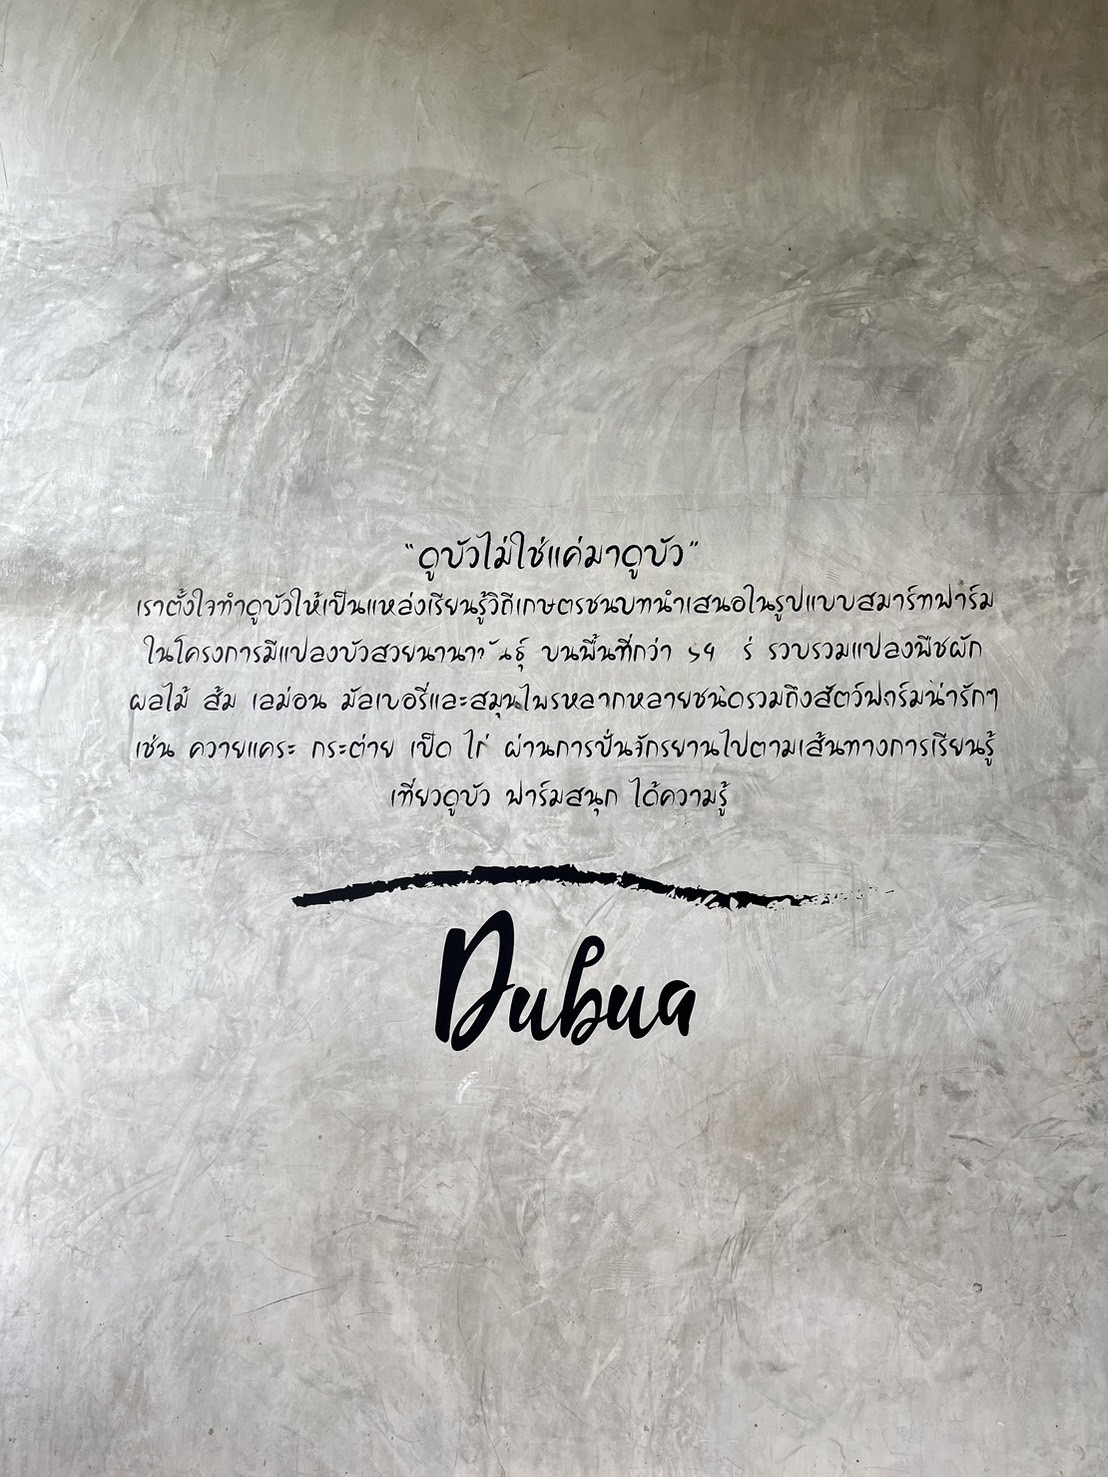 "ดูบัวไม่ใช่แค่มาดูบัว"
เราตั้งใจทำดูบัวให้เป็นแหล่งเรียนรู้วิถีเกษตรชนบทนำเสนอในรูปแบบสมาร์ทฟาร์ม
ในโครงการมีแปลงบัวสวยนานา บนพื้นที่กว่า รวบรวมแปลงพืชผัก
ผลไม้ ส้ม เลม่อน มัลเบอรี่และสมุนไพรหลากหลายชนิดรวมถึงสัตว์ฟาร์มน่ารักๆ
เช่น ควายแคระ กระต่าย เป็ด ไก่ ผ่านการปั่นจักรยานไปตามเส้นทางการเรียนรู้
เที่ยวดูบัว ฟาร์มสนุก ได้ความรู้
Dubua